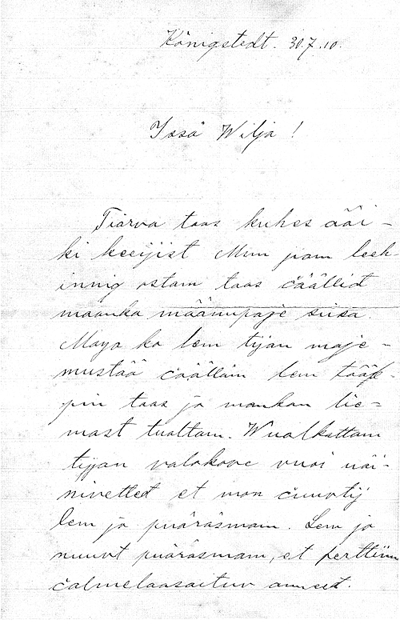 Königstedt. 30.7.10.
Issa Wilja!
Tiarva taas kuhes ääi-
ki keeijist Mun jiam leah
innig ostam taas čäällid
maanka määnupaje siisa.
Maya ko lem tijan maje-
mustää čäällam lem
pin taas ja mankan lie-
mast tuattam. Wualkattam
tijjan valokove vuoi uäi-
nivetted et mon čuuvtij
lem ja puäräsmam. Lem ja
nuuvt puäräsmam, et perttiim
čalmelaasaituv anneet.